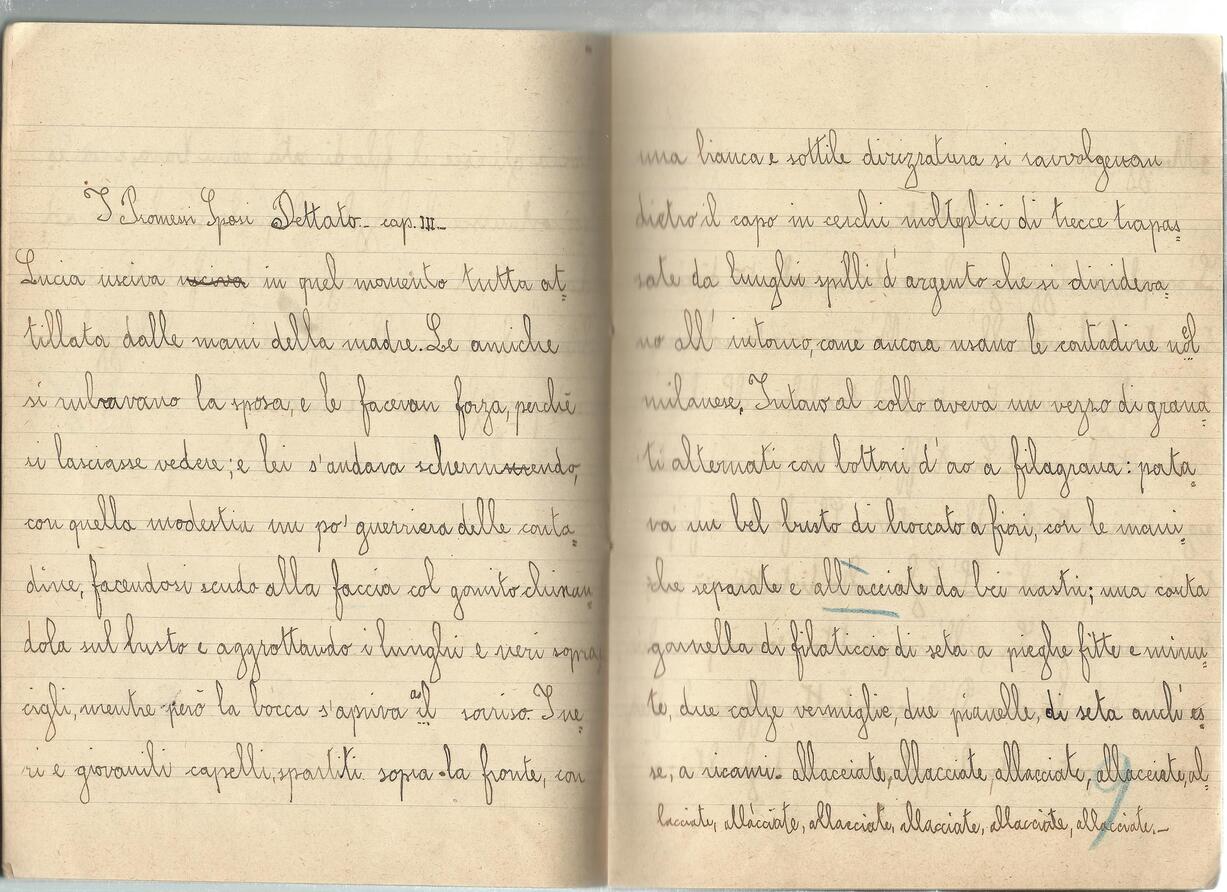 I Promessi Sposi Dettato - cap. III -
Lucia usciva usciva in quel momento tutta at=
tillata dalle mani della madre. Le amiche
si rubavano la sposa, e le facevan forza, perchè
si lasciasse vedere; e lei s'andava schermendo,
con quella modestia un po' guerriera delle conta=
dine, facendosi scudo alla faccia col gomito chinan=
dola sul busto e aggrottando i lunghi e neri sopra
cigli, mentre però la bocca s'apriva al sorriso. I ne=
ri e giovanili capelli, spartiti sopra la fronte, con
una bianca e sottile dirizzatura si ravvolgevan
dietro il capo in cerchi molteplici di trecce trapas=
sate da lunghi spilli d'argento che si divideva=
no all'intorno, come ancora usano le contadine nel
milanese. Intorno al collo aveva un vezzo di grana=
ti alternati con bottoni d'oro a filagrana: porta=
va un bel busto di broccato a fiori, con le mani=
che separate e all'acciate da bei nastri; una corta
gonnella di filaticcio di seta a pieghe fitte e minu=
te, due calze vermiglie, due pianelle, di seta anch'es=
se, a ricami - allacciate, allacciate, allacciate, allacciate, al=
lacciate, allacciate, allacciate, allacciate, allacciate, allacciate. -
9